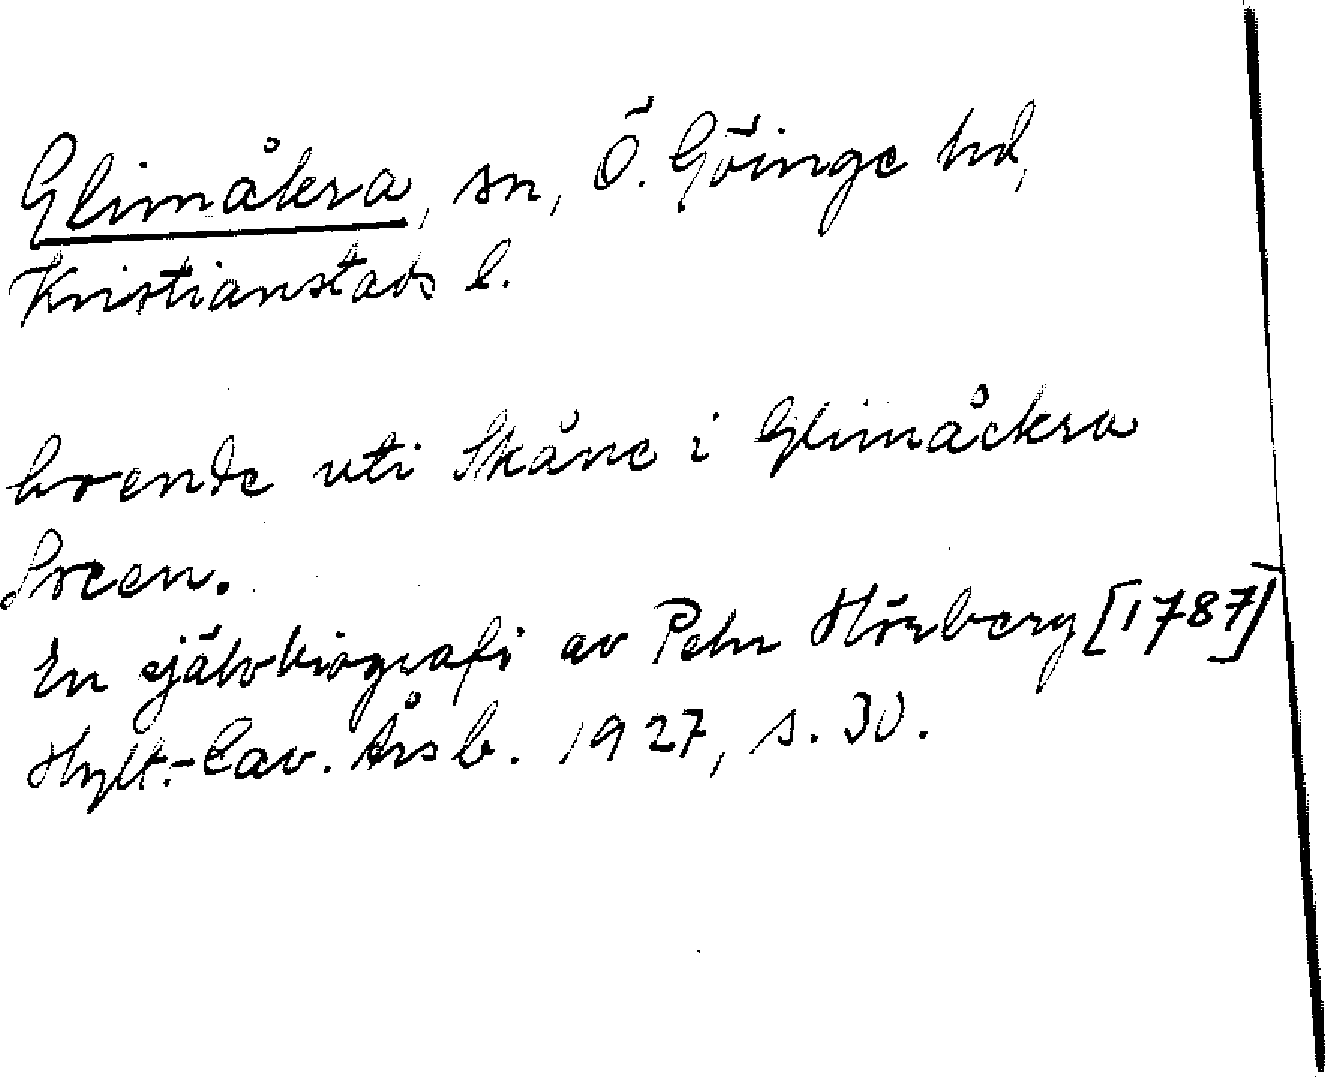 Glimåkra, sn, Ö. Göinge hd,
Kristianstads l.
boende uti Skåne i Glimåckra
Socen.
En självbiografi av Pehr Hörberg [1787]
Hylt.-Cav. Årsb. 1927, s. 30.